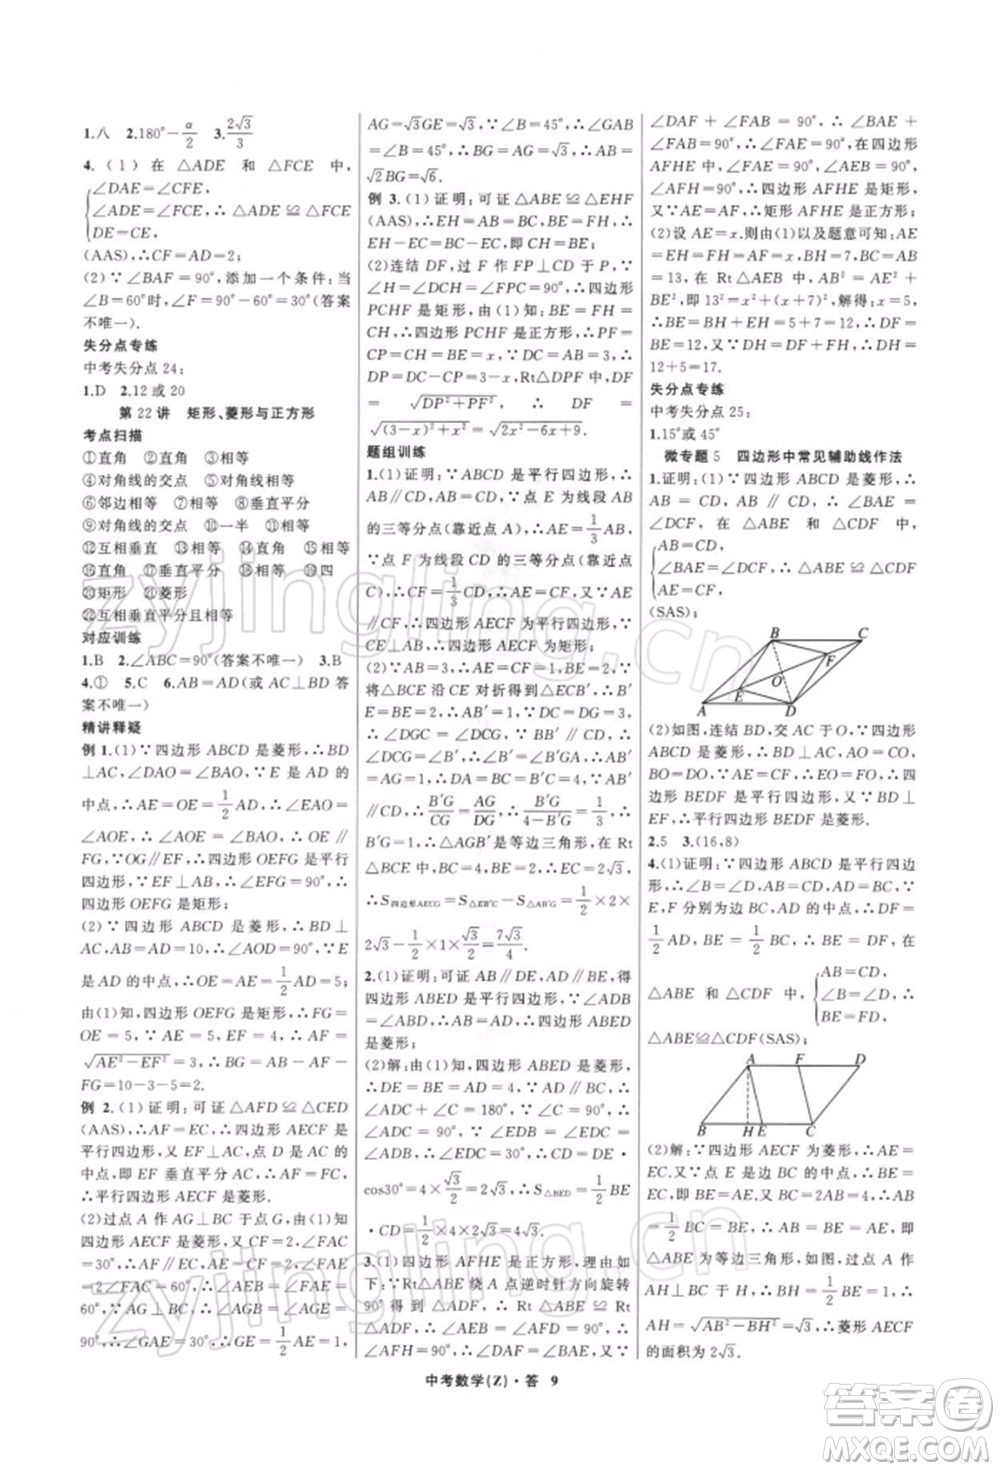 1.八  2.180°-α/2  3.2√3/3
4.(1)在△ADE 和△FCE 中,
{∠DAE=∠CFE,
∠ADE=∠FCE,∴△ADE≌△FCE
DE=CE,
(AAS),∴CF=AD;
(2)∵∠BAF=90°,添加一个条件:当
∠B=60°时,∠F=90°-60°=30°(答案
不唯一).
失分点专练
中考失分点 24:
1.D  2.12 或 20
第 22 讲  矩形、菱形与正方形
考点扫描
①直角  ②直角  ③相等
④对角线的交点  ⑤相等
⑥邻边相等  ⑦相等  ⑧垂直平分
⑨对角线的交点  ⑩一半  ⑪相等
⑫互相垂直  ⑬直角  ⑭相等
⑯直角  ⑰互相垂直  ⑱相等  ⑲四
⑳矩形  ㉑菱形
㉒互相垂直平分且相等
对应训练
1.B  2.∠ABC=90°(答案不唯一)  3.B
4.①  5.C  6.AB=AD(或 AC⊥BD 答
案不唯一)
精讲释疑
例 1.(1)∵四边形 ABCD 是菱形,∴BD
⊥AC,∠DAO=∠BAO,∵E 是 AD 的
中点,∴AE=OE=1/2AD,∴∠EAO=
∠AOE,∴∠AOE=∠BAO,∴OE∥
FG,∵OG∥EF,∴四边形 OEFG 是平行四
边形,∵EF⊥AB,∴∠EFG=90°,∴四
边形 OEFG 是矩形;
(2)∵四边形 ABCD 是菱形,∴BD⊥
AC,AB=AD=10,∴∠AOD=90°,∵E
是 AD 的中点,∴OE=AE=1/2AD=5;
由(1)知,四边形 OEFG 是矩形,∴FG=
OE=5,∵AE=5,EF=4,∴AF=
√(AE²-EF²)=3,∴BG=AB-AF-
FG=10-3-5=2.
例 2.(1)证明:可证△AFD≌△CED
(AAS),∴AF=EC,∴四边形 AECF 是平
行四边形,又 EF⊥AC,AD=CD,∴
点 D,即 EF 垂直平分 AC,∴AF=FC,
∴平行四边形 AECF 是菱形.
(2)过点 A 作 AG⊥BC 于点 G,由(1)知
四边形 AECF 是菱形,∴AE=2,∠FAC
=30°,∴∠FAE=
2∠FAC=60°,∴∠AEB=∠FAE=
60°,∵AG⊥BC,∴∠AGB=∠AGE=
90°,∴∠GAE=30°,∴GE=1/2AE=1,
AG=√3GE=√3,∵∠B=45°,∴∠GAB
=∠B=45°,∴BG=AG=√3,∴AB=
√2BG=√6.
例 3.(1)证明:可证△ABE≌△EHF
(AAS),∴EH=AB=BC,BE=FH,∴
EH-EC=BC-EC,即 CH=BE;
(2)连结 DF,过 F 作 FP⊥CD 于 P,∵
∠H=∠DCH=∠FPC=90°,∴四边形
PCHF 是矩形,由(1)知:BE=FH=
CH,∴四边形 PCHF 是正方形,∴PF=
CP=CH=BE=x,∵DC=AB=3,∴
DP=DC-CP=3-x,Rt△DPF 中,
DF=√(DP²+PF²),∴DF=
√((3-x)²+x²)=√(2x²-6x+9).
题组训练
1.(1)证明:∵ABCD 是平行四边形,∴AB
∥CD,AB=CD,∵点 E 为线段 AB
的三等分点(靠近点 A),∴AE=1/3AB,
∵点 F 为线段 CD 的三等分点(靠近点
C),∴CF=1/3CD,∴AE=CF,又∵
AE∥CF,∴四边形 AECF 为平行四边形,
∴四边形 AECF 为矩形;
将△CEB 沿 CE 对折得到△ECB′,
∴∠DGC=∠B′,∵BB′=∠B′GA,
∴∠AGC=∠B′,∴∠B′=∠B′GA,
AB∥CD,∴B′G/CG=AG/DG,∴B′G/(4-B′G)=1/3,∴
B′G=1,∴△AGB′是等边三角形,在 Rt
△BCE 中,BC=4,BE=2,∴EC=2√3,
∴S四边形AECG=S△EB′C-S△AB′G=1/2×2×
2√3-1/2×1×√3/2=7√3/4.
2.(1)证明:可证 AB∥DE,AD∥BE,得
四边形 ABED 是平行四边形,∵∠ADB
=∠ABD,∴AD=AB,∴四边形 ABED
是菱形;
(2)解:由(1)知,四边形 ABED 是菱形,
∴DE=BE=AD=4,∵AD∥BC,∴
∠ADC+∠C=180°,∵∠ADC=90°,
∴∠C=90°,∵∠DBE=
∠EDC=30°,∴CD=DE·
cos30°=4×√3/2=2√3,∴S△BED=1/2BE
·CD=1/2×4×2√3=4√3.
3.(1)四边形 AFHE 是正方形,理由如
下:∵Rt△ABE 绕 A 点逆时针方向旋转
90°得到△ADF,∴Rt△ABE≌Rt
△ADF,∴∠AEB=∠AFD=90°,∴
∠AFH=90°,∵Rt△ABE≌Rt
∠DAF+∠FAB=90°,∴∠BAE+
∠FAB=90°,∴∠FAE=90°,∴四边形
AFHE 中,∠FAE=90°,∠AEB=90°,
∠AFH=90°,∴四边形 AFHE 是矩形,
又∵AE=AF,∴矩形 AFHE 是正方形;
(2)设 AE=x.则由(1)以及题意可知:AE=
EH=FH=AF=x,BH=7,BC=AB
=13,在 Rt△AEB 中,AB²=AE²+
BE²,即 13²=x²+(x+7)²,解得:x=5,
∴BE=BH+EH=5+7=12,∴DF=
BE=12,又∵DH=DF+FH,∴DH=
12+5=17.
失分点专练
中考失分点 25:
1.15°或 45°
微专题 5  四边形中常见辅助线作法
1.证明:(1)∵四边形 ABCD 是菱形,∴
AB=CD,AB∥CD,∴∠BAE=
∠DCF,在△ABE 和△CDF 中,
{AB=CD,
∠BAE=∠DCF,∴△ABE≌△CDF
AE=CF,
(SAS);
B C
F
O
E
A D
(2)如图,连结 BD,交 AC 于 O,∵四边形
ABCD 是菱形,∴BD⊥AC,AO=CO,
BO=DO,∵AE=CF,∴EO=FO,∴四
边形 BEDF 是平行四边形,又∵BD⊥
EF,∴平行四边形 BEDF 是菱形.
2.5  3.(16,8)
4.(1)证明:∵四边形 ABCD 是平行四边
形,∴AB=CD,AD=BC,∠B=∠D,∵E,
F 分别为 BC,AD 的中点,∴BE=
1/2BC,DF=1/2AD,∴BE=DF,在
△ABE 和△CDF 中,{AB=CD,
∠B=∠D,∴
BE=FD,
△ABE≌△CDF(SAS);
A F D
B H E C
(2)解:∵四边形 AECF 是菱形,∴AE=
EC,∵点 E 是边 BC 的中点,∴BE=EC,
即 BE=AE,又 BC=2AB=4,∴AB=
1/2BC=BE=2,∴AB=BE=AE,即
△ABE 为等边三角形,如图,过点 A 作
AH⊥BC 于 H,∴BH=1/2BE=1,∴
AH=√(AB²-BH²)=√3,∴菱形 AECF
的面积为 2√3.
中考数学(Z)·答  9
zyjingling.cn
zyjingling.cn
答案圈
MXQE.COM